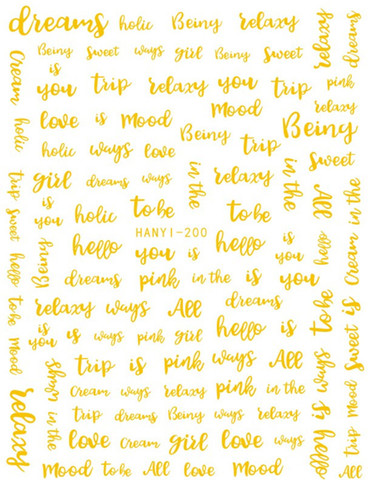 dreams holic Beiny relaxy
Beiny Sweet ways girl Beiny Sweet
is
you trip relaxy you trip pink
love is mood Mood relaxy
Beiny Beiny
holic ways love trip Sweet
girl dreams ways in the relaxy in the All
is
you holic to be to be
HANYI-200
hello you is hello is
you hello
dreams pink in the is
relaxy ways All dreams
is
you is ways pink girl hello is
trip is pink ways All
Cream ways relaxy pink in the
trip dreams Beiny ways relaxy
love Cream girl love is
Mood to be All love Mood
Cream holic
trip sweet hello to be mood
relaxy
Beiny
ways in the
relaxy dreams
Cream in the
Sweet is
trip mood
All
to be
is hello